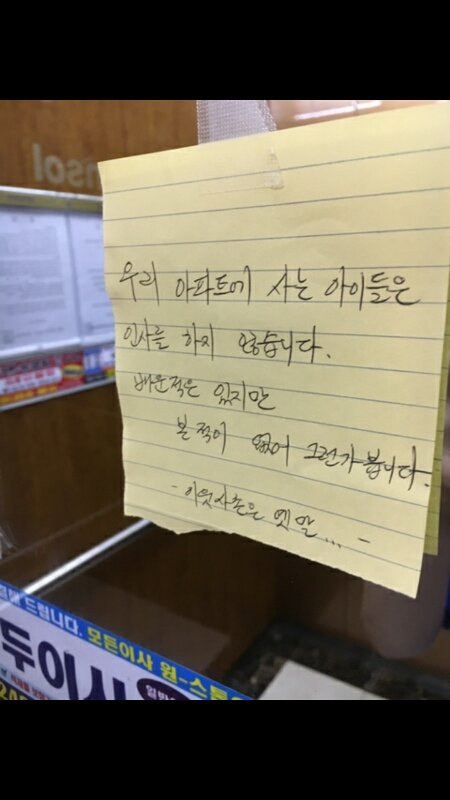 nsol
우리 아파트에 사는 아이들은
인사를 하지 않습니다.
배운적은 있지만
본 적이 없어 그런가 봅니다.
- 이웃사촌은 옛말.... -
해 드립니다. 모든이사 원-스톱
두이사